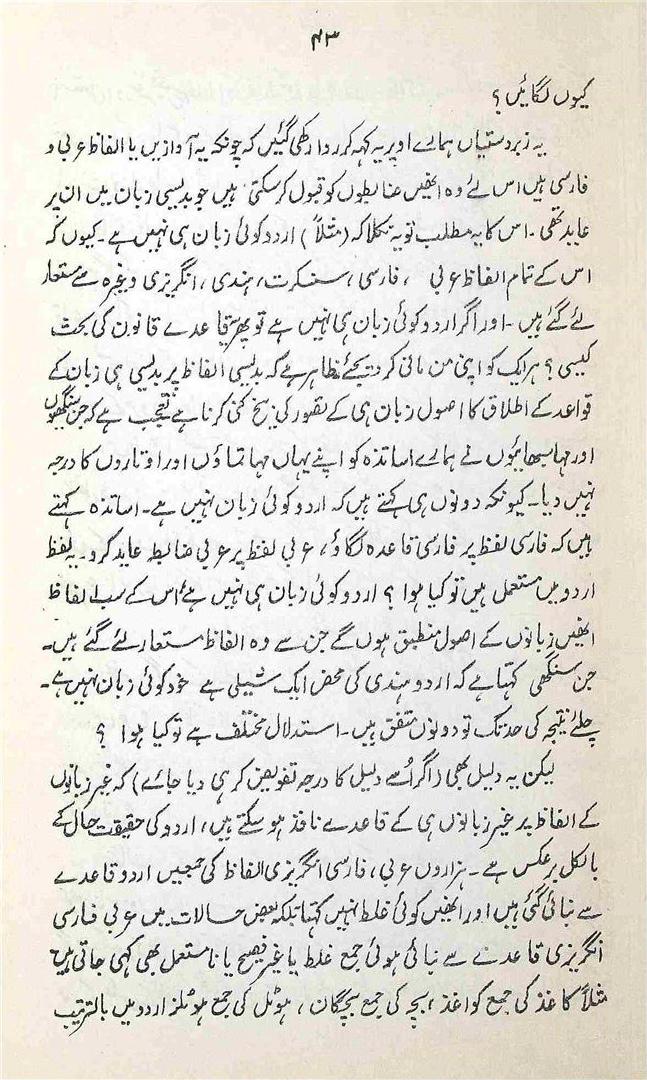 ۴۳
کیوں لگائیں ؟
یہ زبردستیاں ہمارے اوپر یہ کہہ کر روا رکھی گئیں کہ چونکہ یہ آوازیں یا الفاظ عربی و
فارسی ہیں اس لئے وہ انھیں ضابطوں کو قبول کرسکتی ہیں جو بدیسی زبان میں ان پر
عاید تھی ۔ اس کا یہ مطلب تو یہ نکلا کہ (مثلاً) اردو کوئی زبان ہی نہیں ہے ۔ کیوں کہ
اس کے تمام الفاظ عربی ، فارسی ، سنسکرت ، ہندی ، انگریزی وغیرہ سے مستعار
لئے گئے ہیں ۔ اور اگر اردو کوئی زبان ہی نہیں ہے تو پھر قاعدے قانون کی بحث
کیسی ؟ ہر ایک کو اپنی من مانی کر دیجئے ظاہر ہے کہ بدیسی الفاظ پر بدیسی ہی زبان کے
قواعد کے اطلاق کا اصول زبان ہی کے تصور کی بیخ کنی کرنا ہے تعجب ہے کہ جن سنگھیوں
اور مہا سبھائیوں نے ہمارے اساتذہ کو اپنے یہاں مہاتماؤں اور اوتاروں کا درجہ
نہیں دیا ۔ کیونکہ دونوں ہی کہتے ہیں کہ اردو کوئی زبان نہیں ہے ۔ اساتذہ کہتے
ہیں کہ فارسی لفظ پر فارسی قاعدہ لگاؤ ، عربی لفظ پر عربی ضابطہ عاید کرو ۔ یہ لفظ
اردو میں مستعمل ہیں تو کیا ہوا ؟ اردو کوئی زبان ہی نہیں ہے اس کے سب الفاظ
انھیں زبانوں کے اصول منطبق ہوں گے جن سے وہ الفاظ مستعار لئے گئے ہیں ۔
جن سنگھی کہتا ہے کہ اردو ہندی کی محض ایک شیلی ہے خود کوئی زبان نہیں ہے ۔
چلئے نتیجہ کی حد تک تو دونوں متفق ہیں ۔ استدلال مختلف ہے تو کیا ہوا ؟
لیکن یہ دلیل بھی (اگر اُسے دلیل کا درجہ تفویض کر ہی دیا جائے) کہ غیر زبانوں
کے الفاظ پر غیر زبانوں ہی کے قاعدے نافذ ہو سکتے ہیں ، اردو کی حقیقت حال کے
بالکل برعکس ہے ۔ ہزاروں عربی ، فارسی انگریزی الفاظ کی جمعیں اردو قاعدے
سے بنائی گئی ہیں اور انھیں کوئی غلط نہیں کہتا بلکہ بعض حالات میں عربی فارسی
انگریزی قاعدے سے بنائی ہوئی جمع غلط یا غیر فصیح یا نا مستعمل بھی کہی جاتی ہیں
مثلاً کاغذ کی جمع کواغذ ، بچہ کی جمع بچگان ، ہوٹل کی جمع ہوٹلز اردو میں بالترتیب